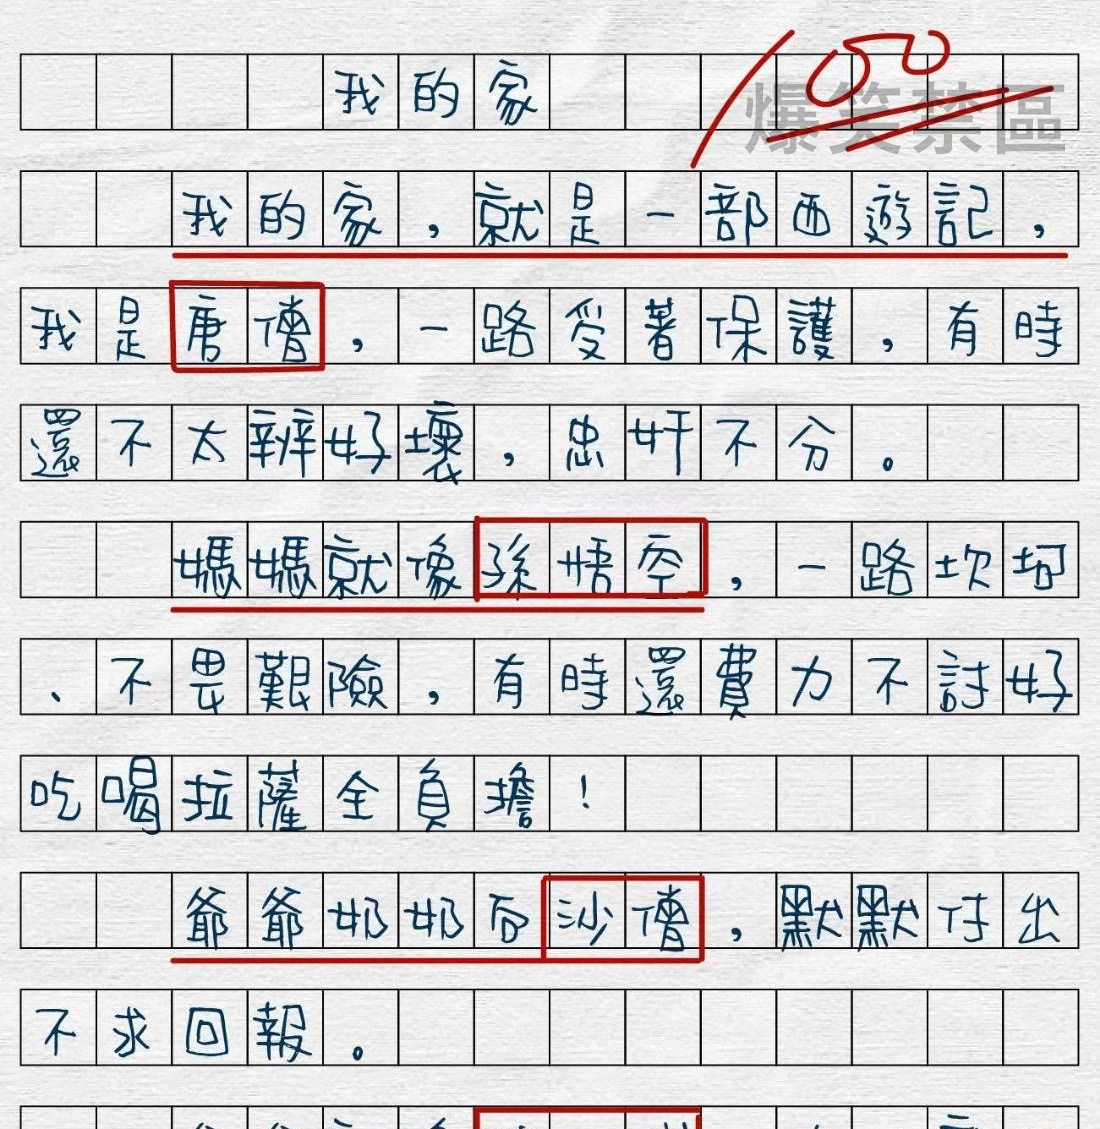 我的家
100
爆笑禁區
我的家，就是一部西遊記，
我是唐僧，一路受著保護，有時
還不太辨好壞，忠奸不分。
媽媽就像孫悟空，一路坎坷
、不畏艱險，有時還費力不討好
吃喝拉薩全負擔！
爺爺奶奶同沙僧，默默付出
不求回報。